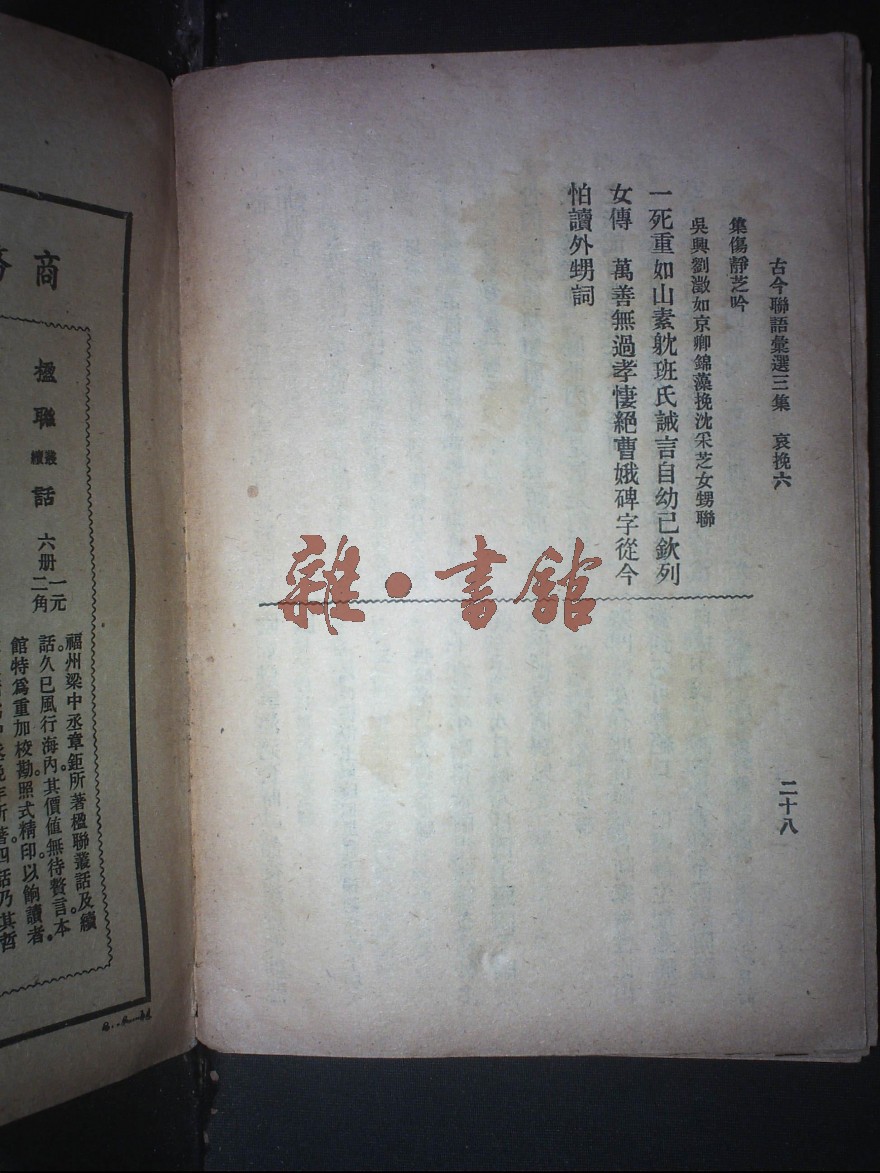 古今聯語彙選三集　哀挽六
二十八
集傷靜芝吟
吳興劉澂如京卿錦藻挽沈采芝女甥聯
一死重如山素躭班氏誡言自幼已欽列
女傳　萬善無過孝悽絕曹娥碑字從今
怕讀外甥詞
雜·書館
商
楹聯叢續話　六册　一元二角
福州梁中丞章鉅所著楹聯叢話及續
話。久已風行海內。其價值無待贅言。本
館特爲重加校勘。照式精印。以餉讀者。